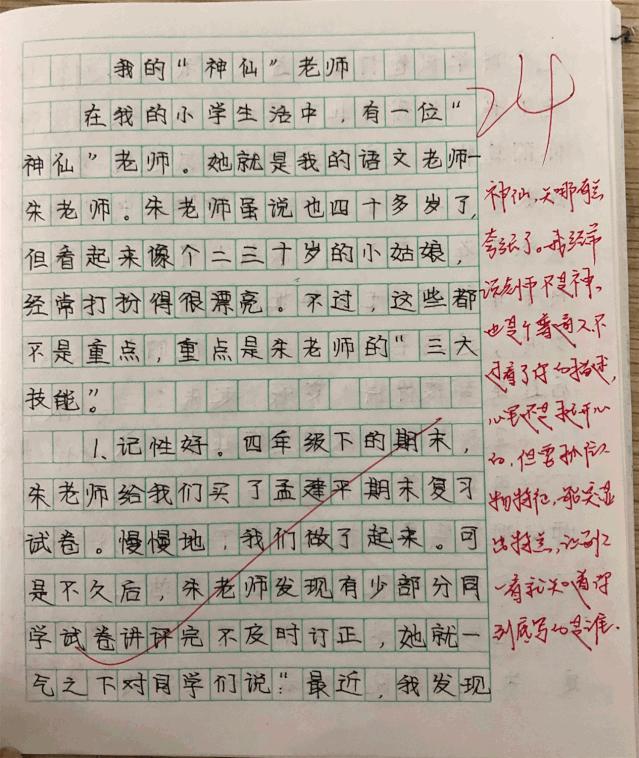 我的“神仙”老师
在我的小学生活中，有一位“
神仙”老师。她就是我的语文老师—
朱老师。朱老师虽说也四十多岁了，
但看起来像个二三十岁的小姑娘，
经常打扮得很漂亮。不过，这些都
不是重点，重点是朱老师的“三大
技能”。
1、记性好。四年级下的期末，
朱老师给我们买了孟建平期末复习
试卷。慢慢地，我们做了起来。可
是不久后，朱老师发现有少部分同
学试卷讲评完不及时订正，她就一
气之下对同学们说：“最近，我发现
24
神仙，
夸张了。我经常
说老师不是神，
也是个普通人。不
过看了你的描述，
心里还是挺开心
的，但要抓住人
物特征，能突显
出特点，让别人
一看就知道你
到底写的是谁。